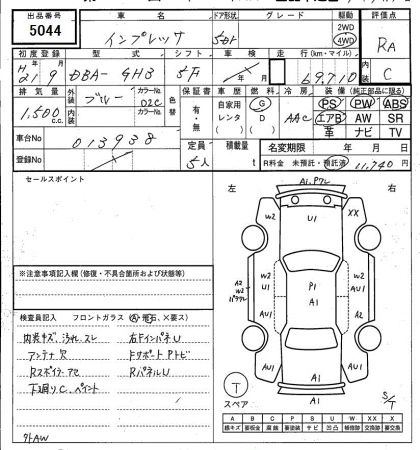 出品番号 車名 ドア形状 グレード 駆動 評価点
5044 インプレッサ 5D 2WD 4WD RA
初度登録 型式 シフト 車検 走行(km・マイル) 内装
H21 9 DBA-GH3 5F 年 月 69,710 C
排気量 外装 カラーNo. 内装 カラーNo. 色替 保証書 車歴 燃料 冷房 装備(純正部品に限る)
1,500c.c. ブルー 02C 有・無 自家用 レンタ ( ) G D ( ) AAC PS PW ABS
エアB AW SR
革 ナビ TV
車台No 013938 定員 5人 積載量 t 名変期限 年 月 日
登録No R料金 未預託・預託済 11,740円
セールスポイント
左 右
A1,Pワレ
W2 U1 XX
A2 W2 W2 AU1 P1 A1 W2 AU1
AU1 A1 AU1
A1
T
スペア
S/T
※注意事項記入欄(修復・不具合箇所および状態等)
検査員記入 フロントガラス(A・飛石、×要ス)
内装キズ、汚れ、スレ 右FインパネU
アンテナ穴 FサポートPトビ
Rスポイラーアセ RパネルU
下廻りC、ペイント
外AW
A B C P S U W X XX X
線キズ 要板金 腐蝕 要塗装 サビ 凹凸 補修跡 交換跡 要交換